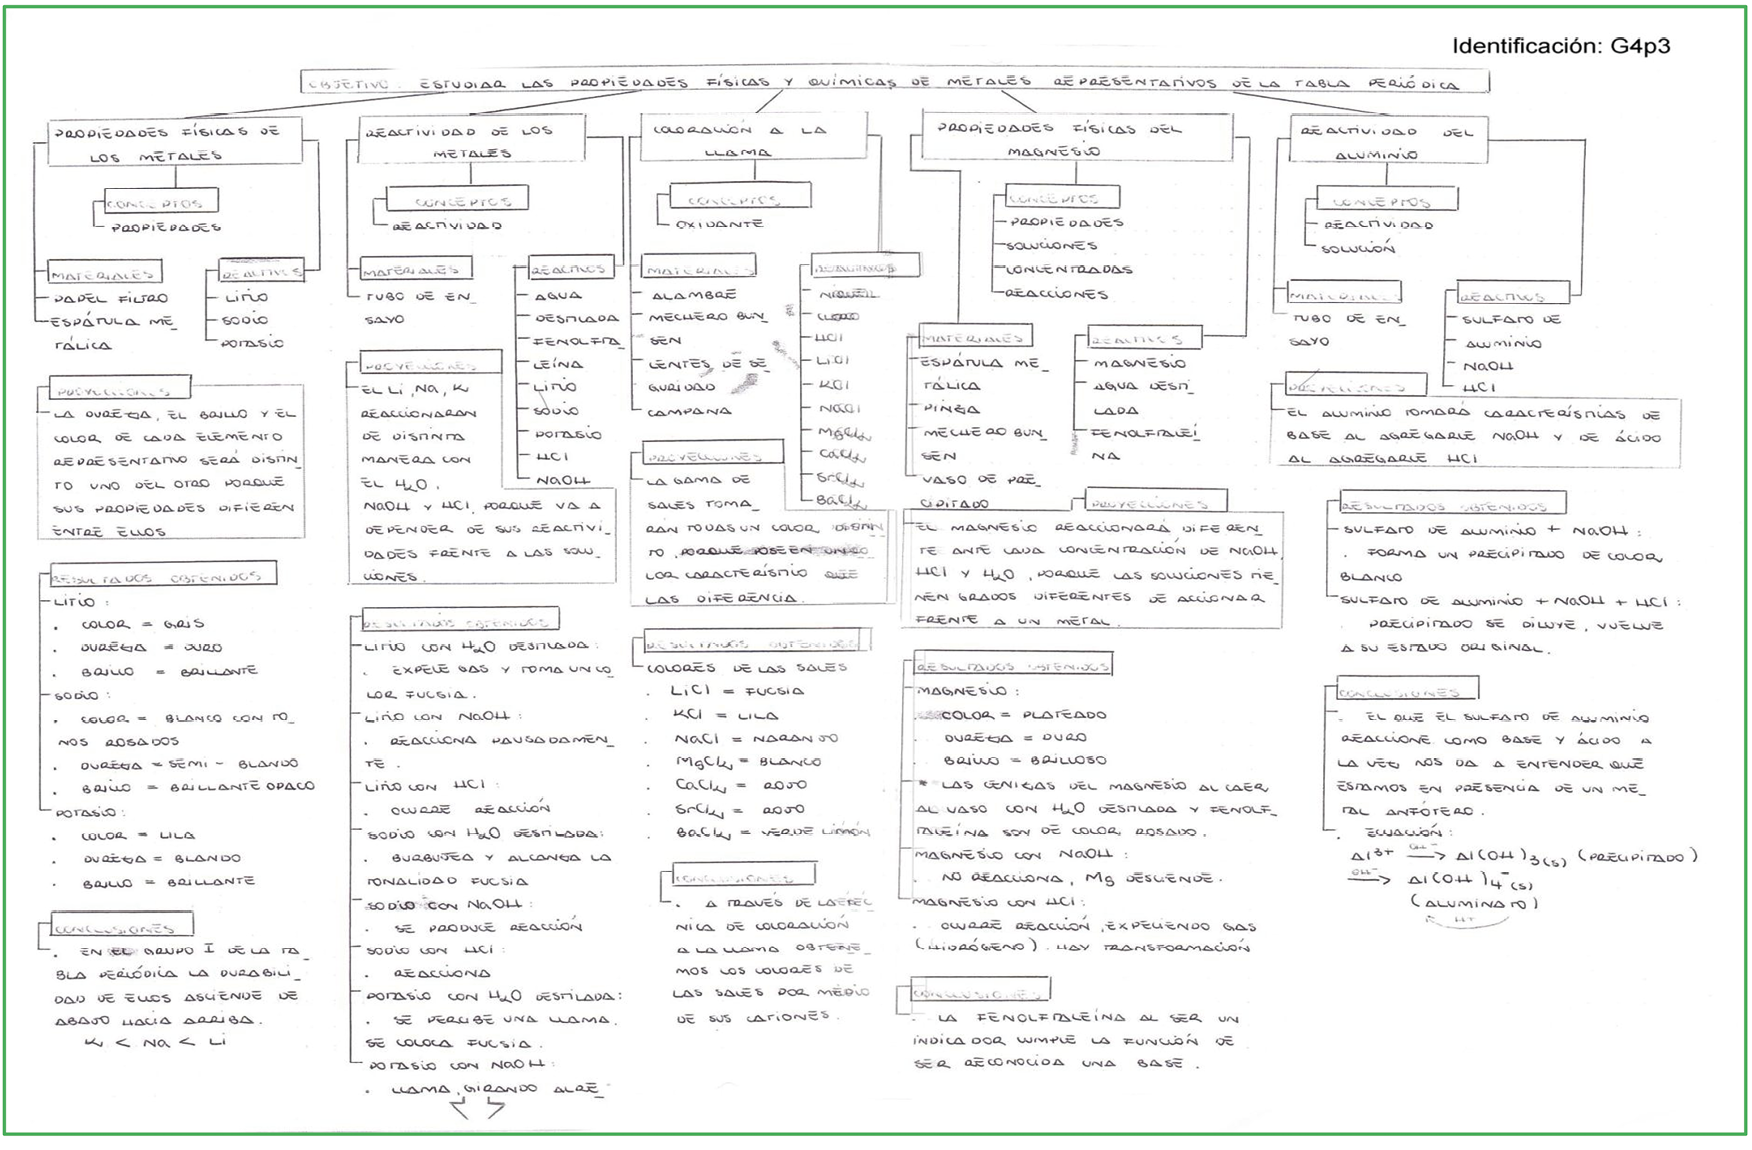 Identificación: G4p3
OBJETIVO: ESTUDIAR LAS PROPIEDADES FÍSICAS Y QUÍMICAS DE METALES REPRESENTATIVOS DE LA TABLA PERIÓDICA
PROPIEDADES FÍSICAS DE
LOS METALES
CONCEPTOS
PROPIEDADES
MATERIALES
PAPEL FILTRO
ESPÁTULA ME_
TÁLICA
REACTIVOS
LITIO
SODIO
POTASIO
PROYECCIONES
LA DUREZA, EL BRILLO Y EL
COLOR DE CADA ELEMENTO
REPRESENTATIVO SERÁ DISTIN_
TO UNO DEL OTRO PORQUE
SUS PROPIEDADES DIFIEREN
ENTRE ELLOS
RESULTADOS OBTENIDOS
LITIO:
. COLOR = GRIS
. DUREZA = DURO
. BRILLO = BRILLANTE
SODIO:
. COLOR = BLANCO CON TO_
NOS ROSADOS
. DUREZA = SEMI - BLANDO
. BRILLO = BRILLANTE OPACO
POTASIO:
. COLOR = LILA
. DUREZA = BLANDO
. BRILLO = BRILLANTE
CONCLUSIONES
. EN EL GRUPO I DE LA TA_
BLA PERIÓDICA LA DURABILI_
DAD DE ELLOS ASCIENDE DE
ABAJO HACIA ARRIBA.
K < Na < Li
REACTIVIDAD DE LOS
METALES
CONCEPTOS
REACTIVIDAD
MATERIALES
TUBO DE EN_
SAYO
REACTIVOS
AGUA
DESTILADA
FENOLFTA_
LEÍNA
LITIO
SODIO
POTASIO
HCl
NaOH
PROYECCIONES
EL Li, Na, K
REACCIONARAN
DE DISTINTA
MANERA CON
EL H2O,
NaOH Y HCl, PORQUE VA A
DEPENDER DE SUS REACTIVI_
DADES FRENTE A LAS SOLU_
CIONES.
RESULTADOS OBTENIDOS
LITIO CON H2O DESTILADA:
. EXPELE GAS Y TOMA UN CO_
LOR FUCSIA.
LITIO CON NaOH:
. REACCIONA PAUSADAMEN_
TE.
LITIO CON HCl:
. OCURRE REACCIÓN
SODIO CON H2O DESTILADA:
. BURBUJEA Y ALCANZA LA
TONALIDAD FUCSIA
SODIO CON NaOH:
. SE PRODUCE REACCIÓN
SODIO CON HCl:
. REACCIONA
POTASIO CON H2O DESTILADA:
. SE PERCIBE UNA LLAMA.
SE COLOCA FUCSIA.
POTASIO CON NaOH:
. LLAMA, GIRANDO ALRE_
COLORACIÓN A LA
LLAMA
CONCEPTOS
OXIDANTE
MATERIALES
ALAMBRE
MECHERO BUN_
SEN
LENTES DE SE_
GURIDAD
CAMPANA
REACTIVOS
NIQUEL
CLORO
HCl
LiCl
KCl
NaCl
MgCl2
CaCl2
SrCl2
BaCl2
PROYECCIONES
LA GAMA DE
SALES TOMA_
RÁN TODAS UN COLOR DISTIN
TO, PORQUE POSEEN UN CO
LOR CARACTERÍSTICO QUE
LAS DIFERENCIA.
RESULTADOS OBTENIDOS
COLORES DE LAS SALES
. LiCl = FUCSIA
. KCl = LILA
. NaCl = NARANJO
. MgCl2 = BLANCO
. CaCl2 = ROJO
. SrCl2 = ROJO
. BaCl2 = VERDE LIMÓN
CONCLUSIONES
. A TRAVÉS DE LA TÉC_
NICA DE COLORACIÓN
A LA LLAMA OBTENE_
MOS LOS COLORES DE
LAS SALES POR MEDIO
DE SUS CATIONES.
PROPIEDADES FÍSICAS DEL
MAGNESIO
CONCEPTOS
PROPIEDADES
SOLUCIONES
CONCENTRADAS
REACCIONES
MATERIALES
ESPÁTULA ME_
TÁLICA
PINZA
MECHERO BUN_
SEN
VASO DE PRE_
CIPITADO
REACTIVOS
MAGNESIO
AGUA DESTI_
LADA
FENOLFTALEÍ_
NA
PROYECCIONES
EL MAGNESIO REACCIONARÁ DIFEREN_
TE ANTE CADA CONCENTRACIÓN DE NaOH,
HCl Y H2O, PORQUE LAS SOLUCIONES TIE_
NEN GRADOS DIFERENTES DE ACCIONAR
FRENTE A UN METAL.
RESULTADOS OBTENIDOS
MAGNESIO:
. COLOR = PLATEADO
. DUREZA = DURO
. BRILLO = BRILLOSO
* LAS CENIZAS DEL MAGNESIO AL CAER
AL VASO CON H2O DESTILADA Y FENOLF_
TALEÍNA SON DE COLOR ROSADO.
MAGNESIO CON NaOH:
. NO REACCIONA, Mg DESCIENDE.
MAGNESIO CON HCl:
. OCURRE REACCIÓN, EXPELIENDO GAS
(HIDRÓGENO). HAY TRANSFORMACIÓN
CONCLUSIONES
. LA FENOLFTALEÍNA AL SER UN
INDICADOR CUMPLE LA FUNCIÓN DE
SER RECONOCIDA UNA BASE.
REACTIVIDAD DEL
ALUMINIO
CONCEPTOS
REACTIVIDAD
SOLUCIÓN
MATERIALES
TUBO DE EN_
SAYO
REACTIVOS
SULFATO DE
ALUMINIO
NaOH
HCl
PROYECCIONES
EL ALUMINIO TOMARÁ CARACTERÍSTICAS DE
BASE AL AGREGARLE NaOH Y DE ÁCIDO
AL AGREGARLE HCl
RESULTADOS OBTENIDOS
SULFATO DE ALUMINIO + NaOH:
. FORMA UN PRECIPITADO DE COLOR
BLANCO
SULFATO DE ALUMINIO + NaOH + HCl:
. PRECIPITADO SE DILUYE, VUELVE
A SU ESTADO ORIGINAL.
CONCLUSIONES
. EL QUE EL SULFATO DE ALUMINIO
REACCIONE COMO BASE Y ÁCIDO A
LA VEZ, NOS DA A ENTENDER QUE
ESTAMOS EN PRESENCIA DE UN ME_
TAL ANFÓTERO.
. ECUACIÓN:
Al3+ OH- → Al(OH)3(s) (PRECIPITADO)
OH- → Al(OH)4-(s)
(ALUMINATO)
H+